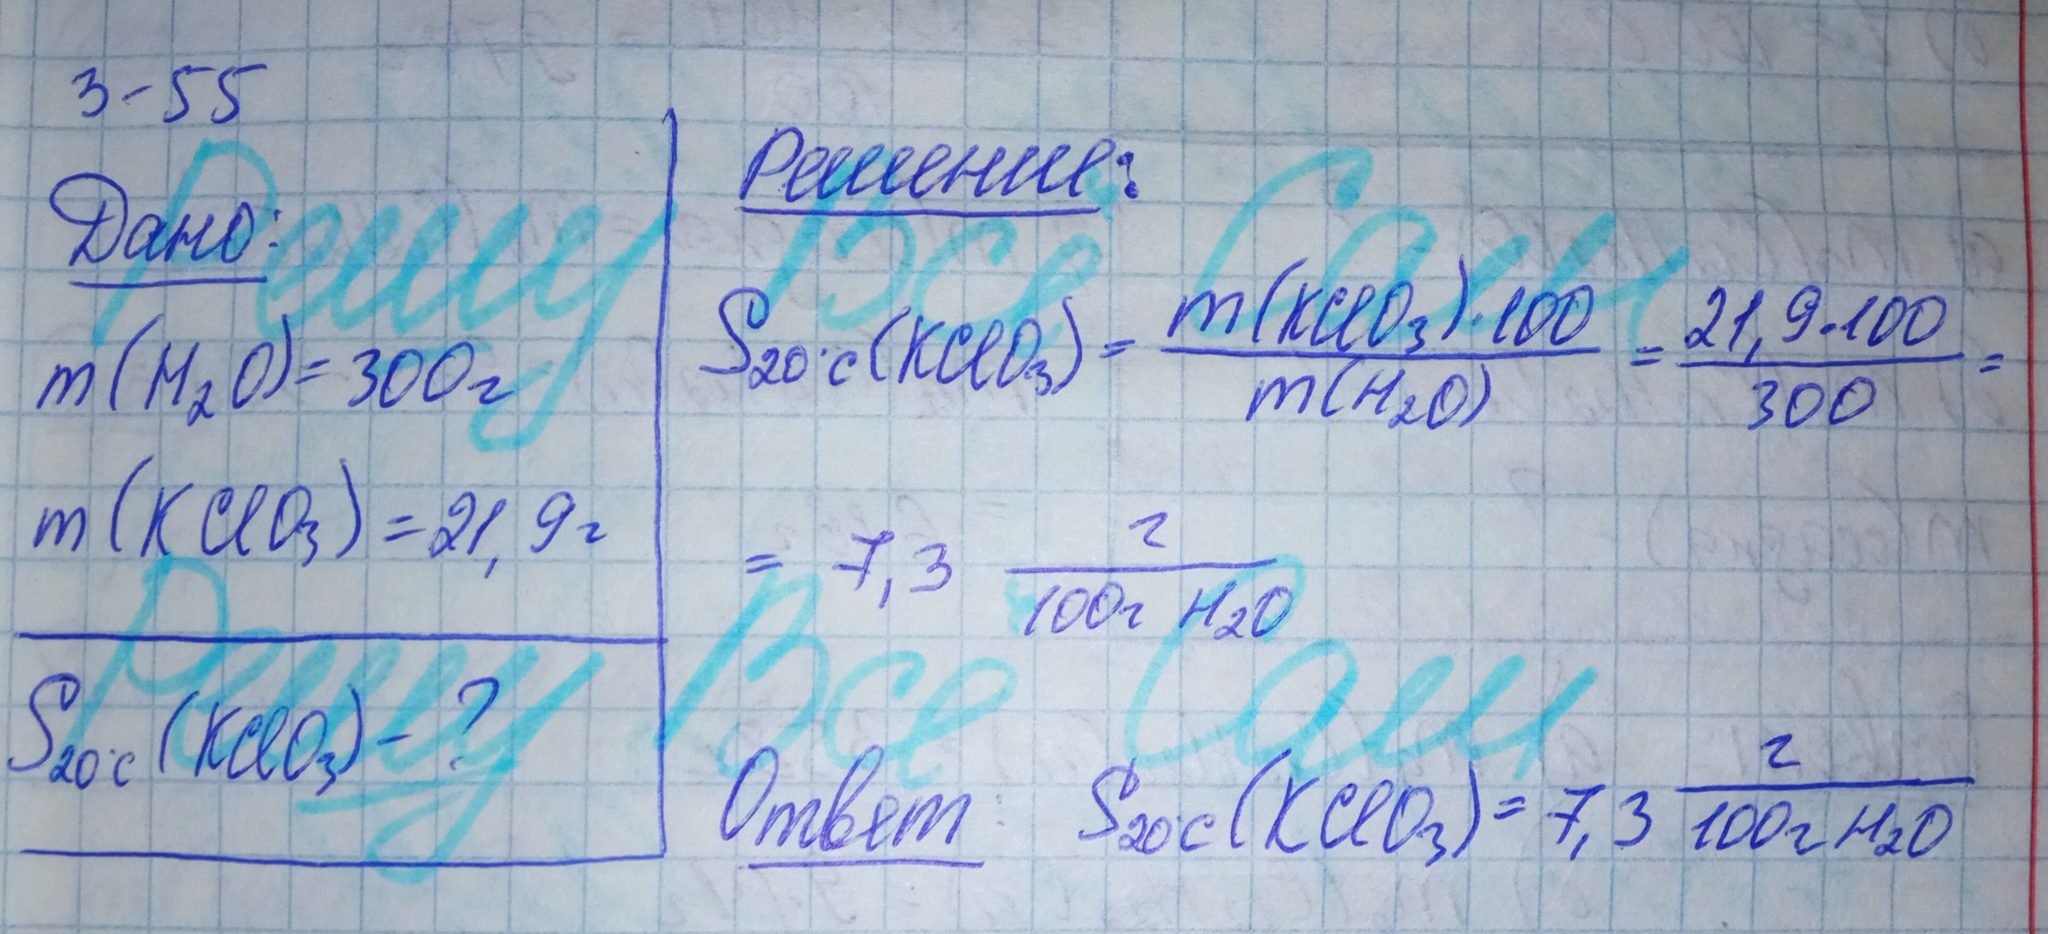 3-55
Дано:
m(H₂O)=300г
m(KClO₃)=21,9г
S₂₀°c(KClO₃)-?
Решение:
S₂₀°c(KClO₃) = m(KClO₃)·100 / m(H₂O) = 21,9·100 / 300 =
= 7,3 г / 100г H₂O
Ответ: S₂₀°c(KClO₃) = 7,3 г / 100г H₂O
Решу Все Сам
Решу Все Сам